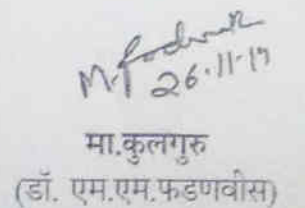 26.11.19
मा.कुलगुरु
(डॉ. एम.एम.फडणवीस)